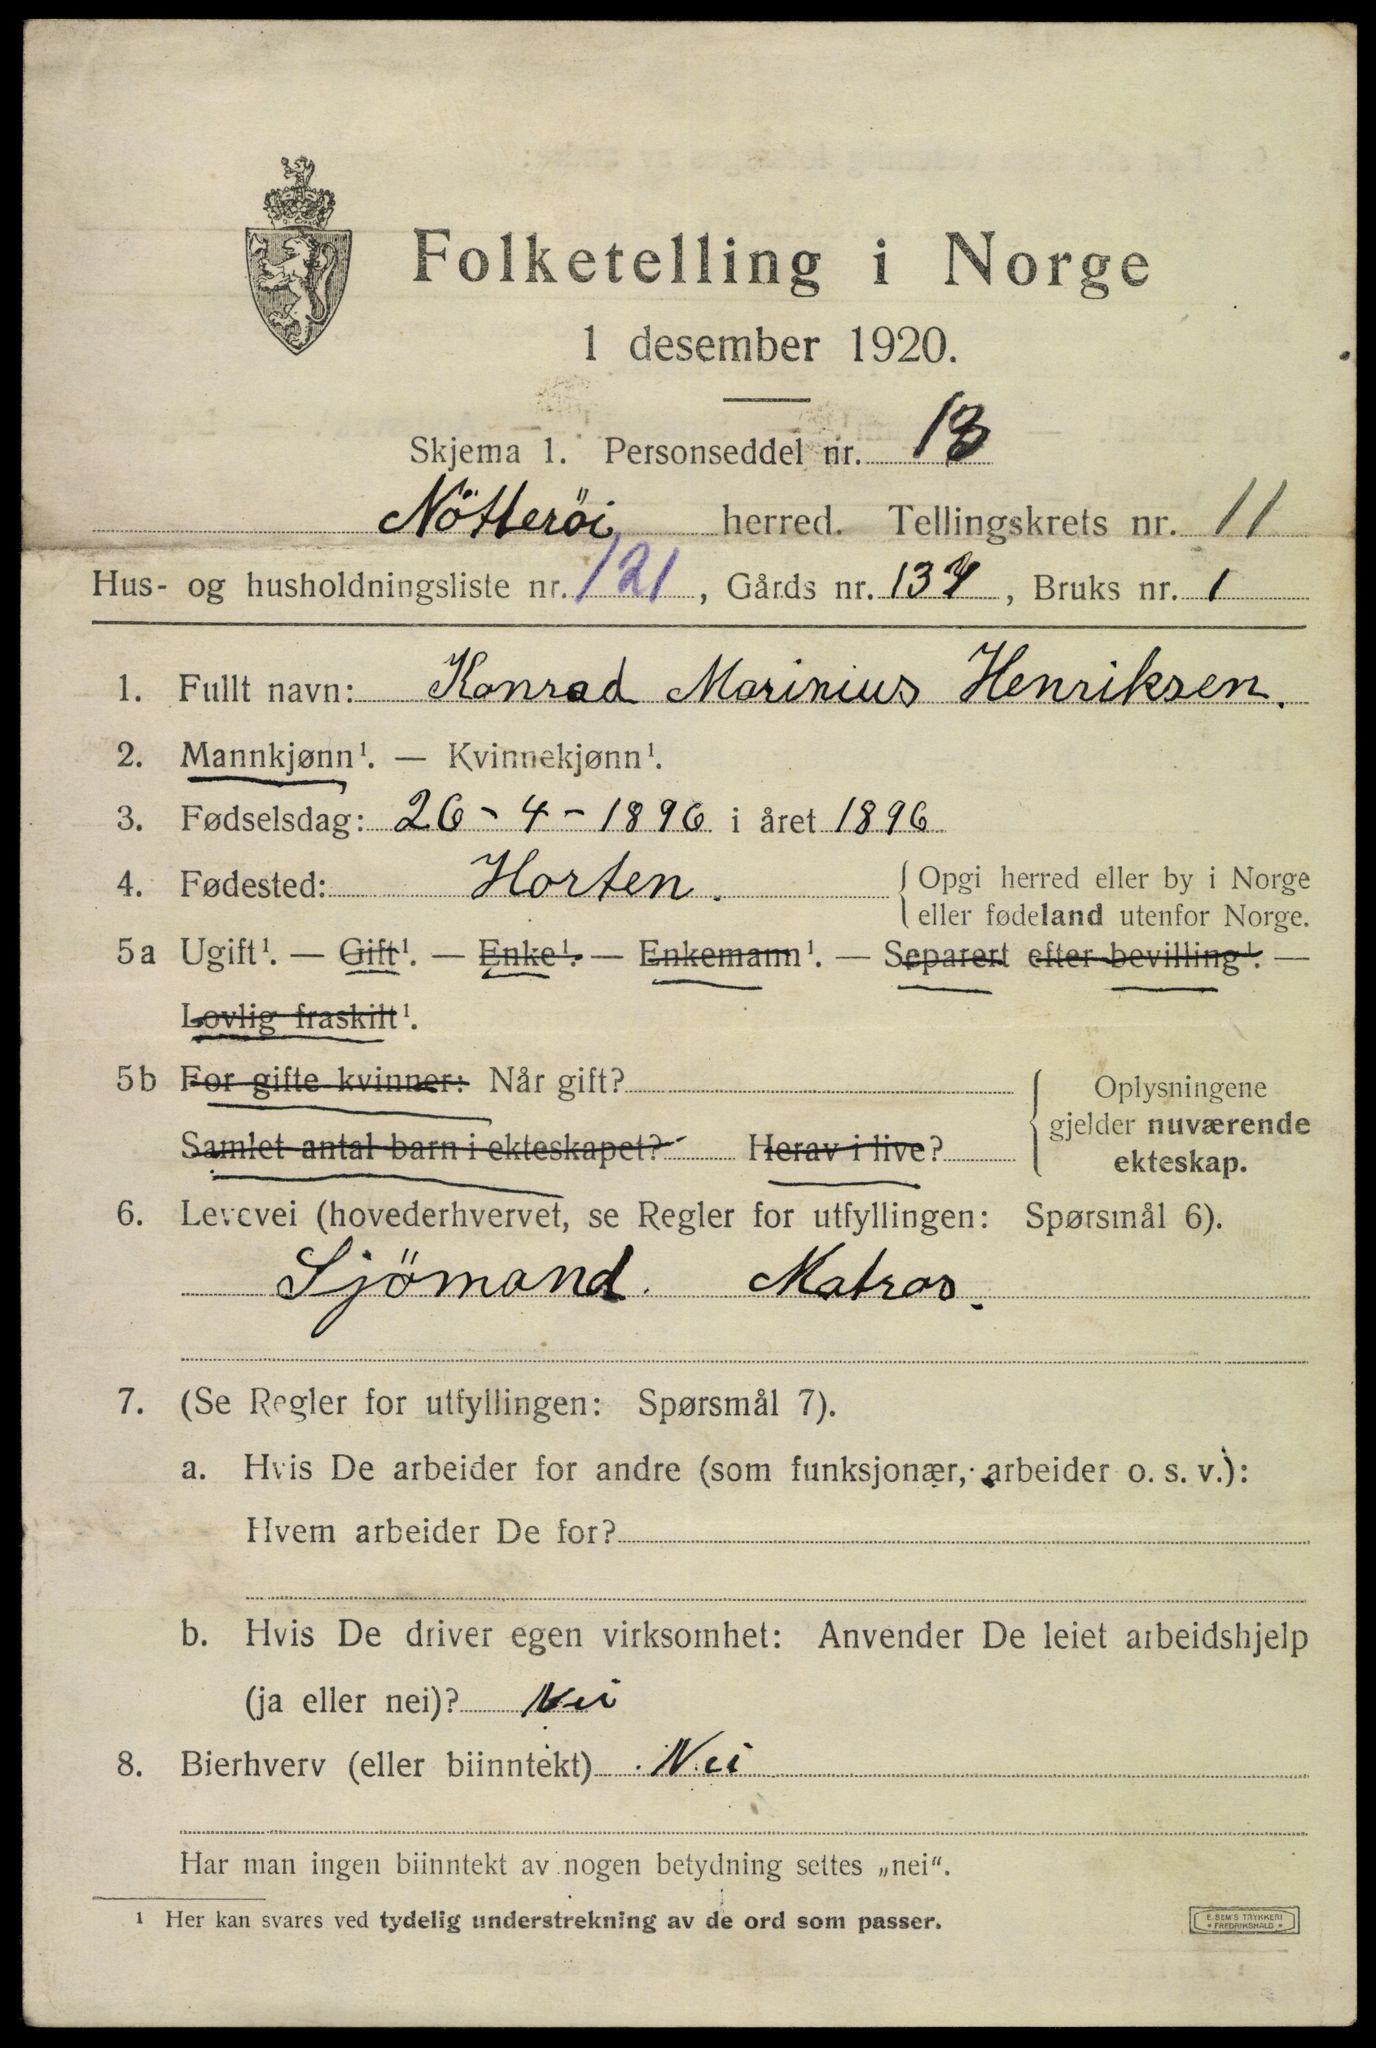 Folketelling i Norge
1 desember 1920.
Skjema 1. Personseddel nr. 13
Nötteröi herred. Tellingskrets nr. 11
Hus- og husholdningsliste nr. 121, Gårds nr. 137, Bruks nr. 1
1. Fullt navn: Konrad Marinius Henriksen.
2. Mannkjønn¹. — Kvinnekjønn¹.
3. Fødselsdag: 26-4-1896 i året 1896
4. Fødested: Horten. { Opgi herred eller by i Norge
eller fødeland utenfor Norge.
5a Ugift¹. — Gift¹. — Enke¹. — Enkemann¹. — Separert efter bevilling¹. —
Lovlig fraskilt¹.
5b For gifte kvinner: Når gift? { Oplysningene
gjelder nuværende
Samlet antal barn i ekteskapet? Herav i live? ekteskap.
6. Levevei (hovederhvervet, se Regler for utfyllingen: Spørsmål 6).
Sjömand. Matros.
7. (Se Regler for utfyllingen: Spørsmål 7).
a. Hvis De arbeider for andre (som funksjonær, arbeider o. s. v.):
Hvem arbeider De for?
b. Hvis De driver egen virksomhet: Anvender De leiet arbeidshjelp
(ja eller nei)? Nei
8. Bierhverv (eller biinntekt) Nei
Har man ingen biinntekt av nogen betydning settes „nei“.
¹ Her kan svares ved tydelig understrekning av de ord som passer.
E. SEM'S TRYKKERI
* FREDRIKSHALD *